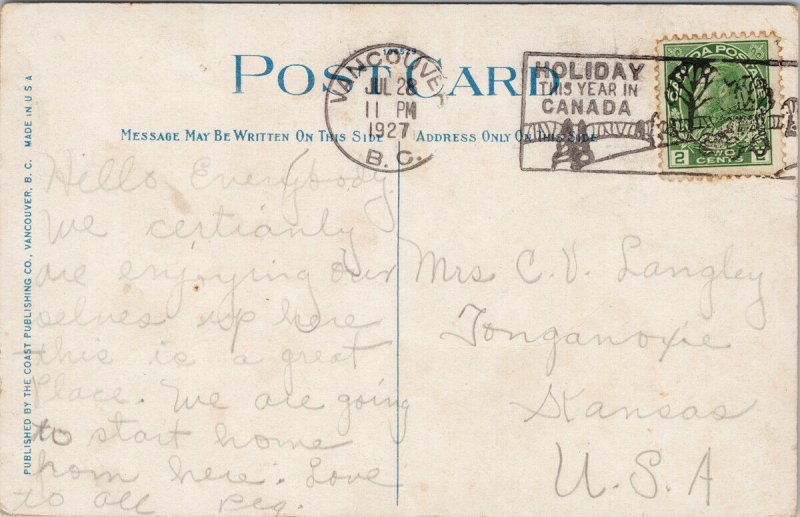 POST CARD
MESSAGE MAY BE WRITTEN ON THIS SIDE
ADDRESS ONLY ON THIS SIDE
VANCOUVER
JUL 28
11 PM
1927
B.C.
HOLIDAY
THIS YEAR IN
CANADA
CANADA POSTAGE
2 CENTS 2
PUBLISHED BY THE COAST PUBLISHING CO., VANCOUVER, B. C. MADE IN U S A
Hello Everybody
We certianly
are enjoying our
selves up here
this is a great
place. We are going
to start home
from here. Love
to all Peg.
Mrs C. V. Langley
Tonganoxie
Kansas
U.S.A